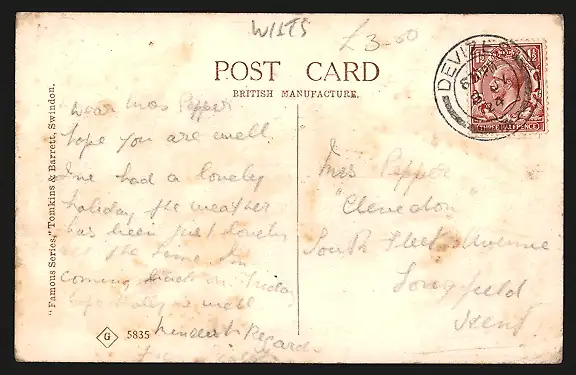 WILTS
£3-00
POST CARD
BRITISH MANUFACTURE.
"Famous Series," Tomkins & Barrett, Swindon.
Dear Mrs Pepper
hope you are well
I've had a lovely
holiday the weather
has been just lovely
all the time. Im
coming back on Friday
hope is well
kindest Regards
G 5835
DEVIZES
24
THREE HALFPENCE
Mrs Pepper
"Clevedon"
South Avenue
Longfield
Kent